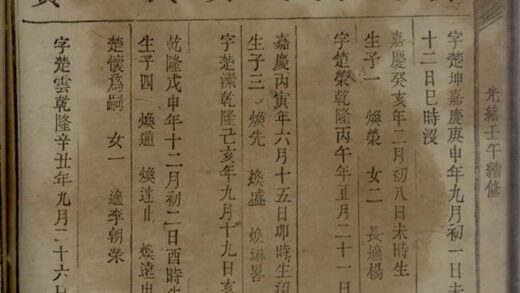 光緒壬午續修
字楚坤嘉慶庚申年九月初一日未
十二日巳時沒
嘉慶癸亥年二月初八日未時生
生子一 煥榮 女二 長適楊
字楚榮乾隆丙午年正月二十一日
嘉慶丙寅年六月十五日卯時生沒
生子三 煥先 煥盛 煥琳畧
字楚瀠乾隆己亥年九月十九日亥
乾隆戊申年十二月初二日酉時生
生子四 煥通 煥達止 煥遠
楚懷爲嗣 女一 適李朝榮
字楚雲乾隆辛丑年九月二十六日